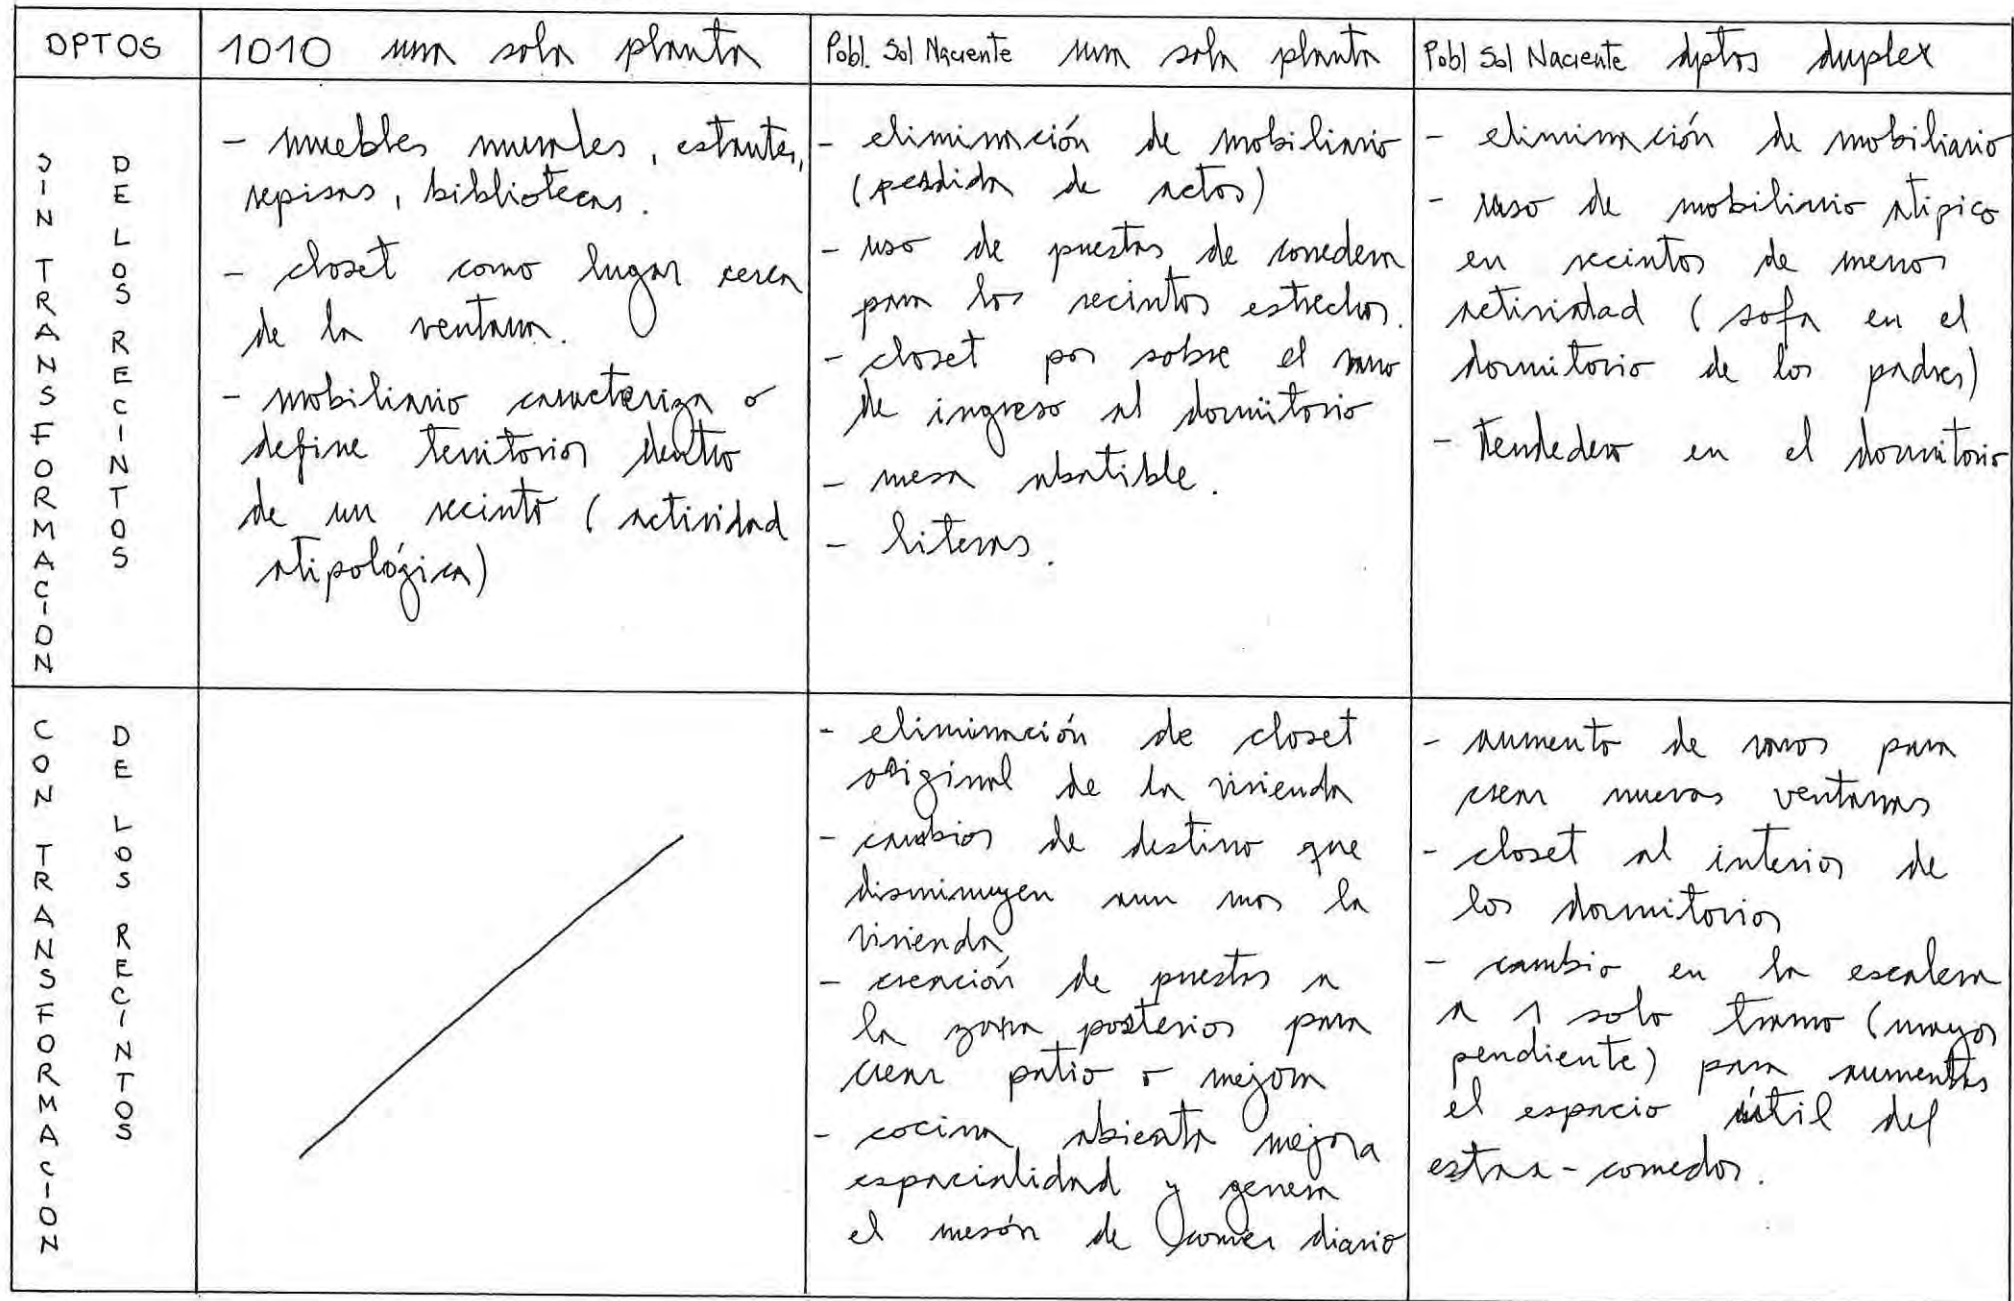 DPTOS
1010 una sola planta
Pobl. Sol Naciente una sola planta
Pobl Sol Naciente dptos duplex
SIN TRANSFORMACION
DE LOS RECINTOS
- muebles murales, estantes,
repisas, bibliotecas.
- closet como lugar cerca
de la ventana.
- mobiliario caracteriza o
define territorios dentro
de un recinto (actividad
atipológica)
- eliminación de mobiliario
(perdida de actos)
- uso de puertas de corredera
para los recintos estrechos.
- closet por sobre el vano
de ingreso al dormitorio
- mesa abatible.
- literas.
- eliminación de mobiliario
- uso de mobiliario atipico
en recintos de menos
actividad (sofa en el
dormitorio de los padres)
- tendedero en el dormitorio
CON TRANSFORMACION
DE LOS RECINTOS
- eliminación de closet
original de la vivienda
- cambios de destino que
disminuyen aun mas la
vivienda
- creación de puertas a
la zona posterior para
crear patio o mejora
- cocina abierta mejora
espacialidad y genera
el mesón de comer diario
- aumento de vanos para
crear nuevas ventanas
- closet al interior de
los dormitorios
- cambio en la escalera
a 1 solo tramo (mayor
pendiente) para aumentar
el espacio útil del
estar-comedor.